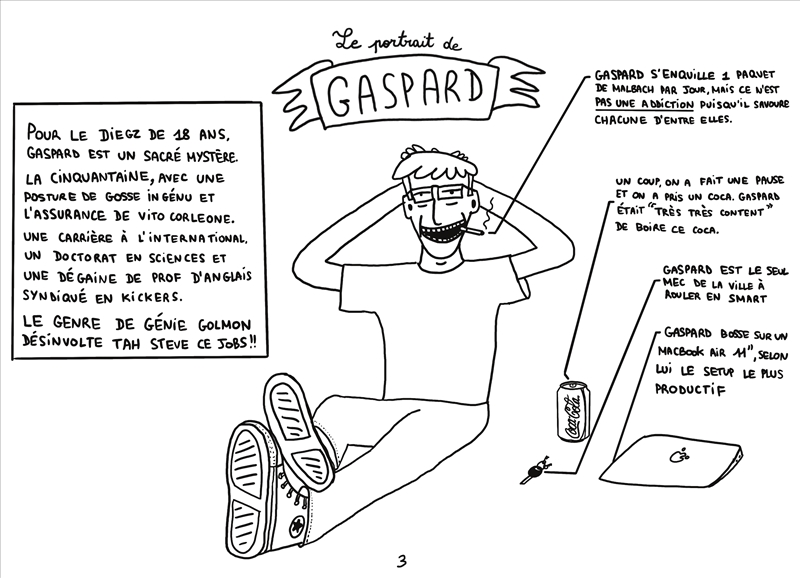 Le portrait de
GASPARD
POUR LE DIEGZ DE 18 ANS,
GASPARD EST UN SACRÉ MYSTÈRE.
LA CINQUANTAINE, AVEC UNE
POSTURE DE GOSSE INGÉNU ET
L'ASSURANCE DE VITO CORLEONE.
UNE CARRIÈRE À L'INTERNATIONAL,
UN DOCTORAT EN SCIENCES ET
UNE DÉGAINE DE PROF D'ANGLAIS
SYNDIQUÉ EN KICKERS.
LE GENRE DE GÉNIE GOLMON
DÉSINVOLTE TAH STEVE CE JOBS!!
GASPARD S'ENQUILLE 1 PAQUET
DE MALBACH PAR JOUR, MAIS CE N'EST
PAS UNE ADDICTION PUISQU'IL SAVOURE
CHACUNE D'ENTRE ELLES.
UN COUP, ON A FAIT UNE PAUSE
ET ON A PRIS UN COCA. GASPARD
ÉTAIT "TRÈS TRÈS CONTENT"
DE BOIRE CE COCA.
GASPARD EST LE SEUL
MEC DE LA VILLE À
ROULER EN SMART
GASPARD BOSSE SUR UN
MACBOOK AIR 11", SELON
LUI LE SETUP LE PLUS
PRODUCTIF
Coca-Cola
3